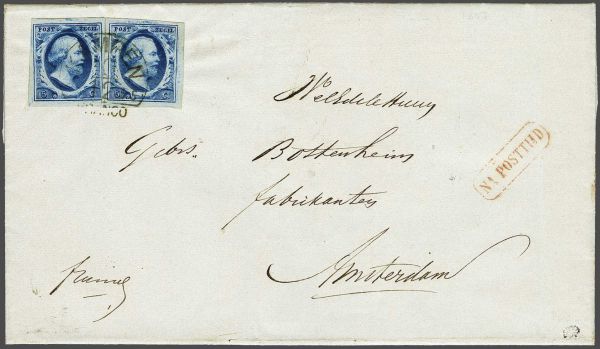 POST ZEGEL POST ZEGEL
5 C 5 C
FRANCO
WelEdele Heeren
Gebrs. Bottenheim
NA POSTTIJD
fabrikanten
Amsterdam
franco